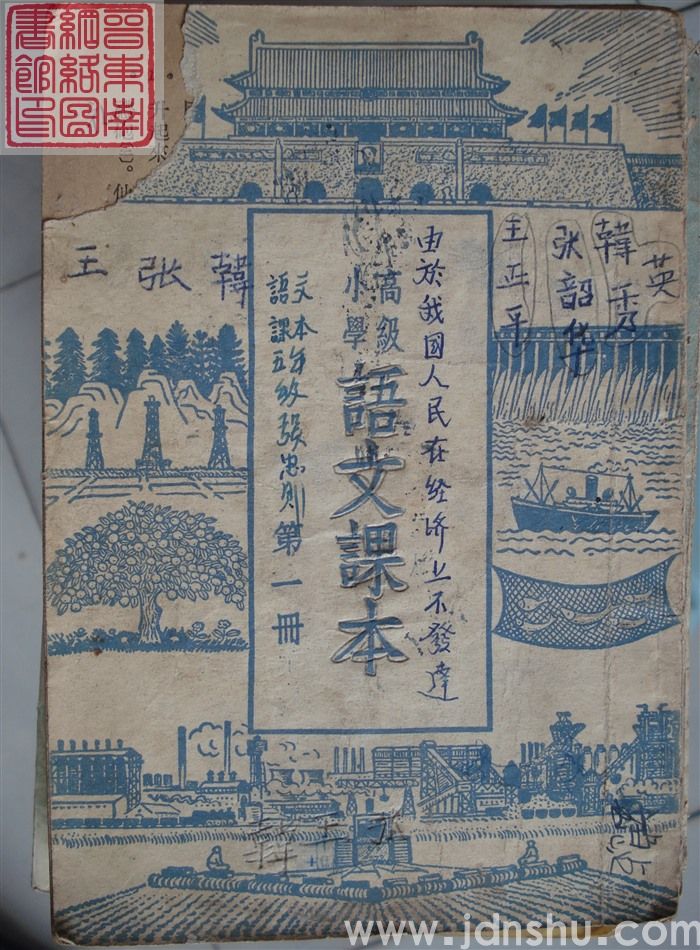 晉東南
網絡圖
書館印
王 张 韓
英
韓秀
张韶华
王正平
由於我國人民在经济上不發達
高級
小學
語文課本
第一冊
語文
課本
五年级
張忠则
www.jdnshu.com